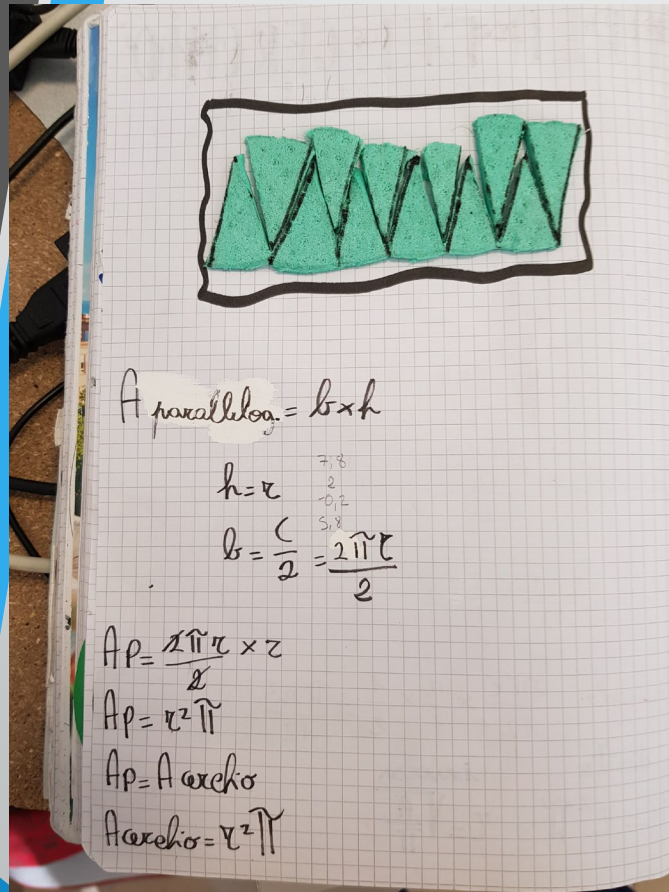 A parallelog. = b×h
h=r
7,8
2
-0,2
5,8
b= C/2 = 2πr/2
Ap= 2πr/2 × r
Ap= r²π
Ap= A cerchio
A cerchio = r²π